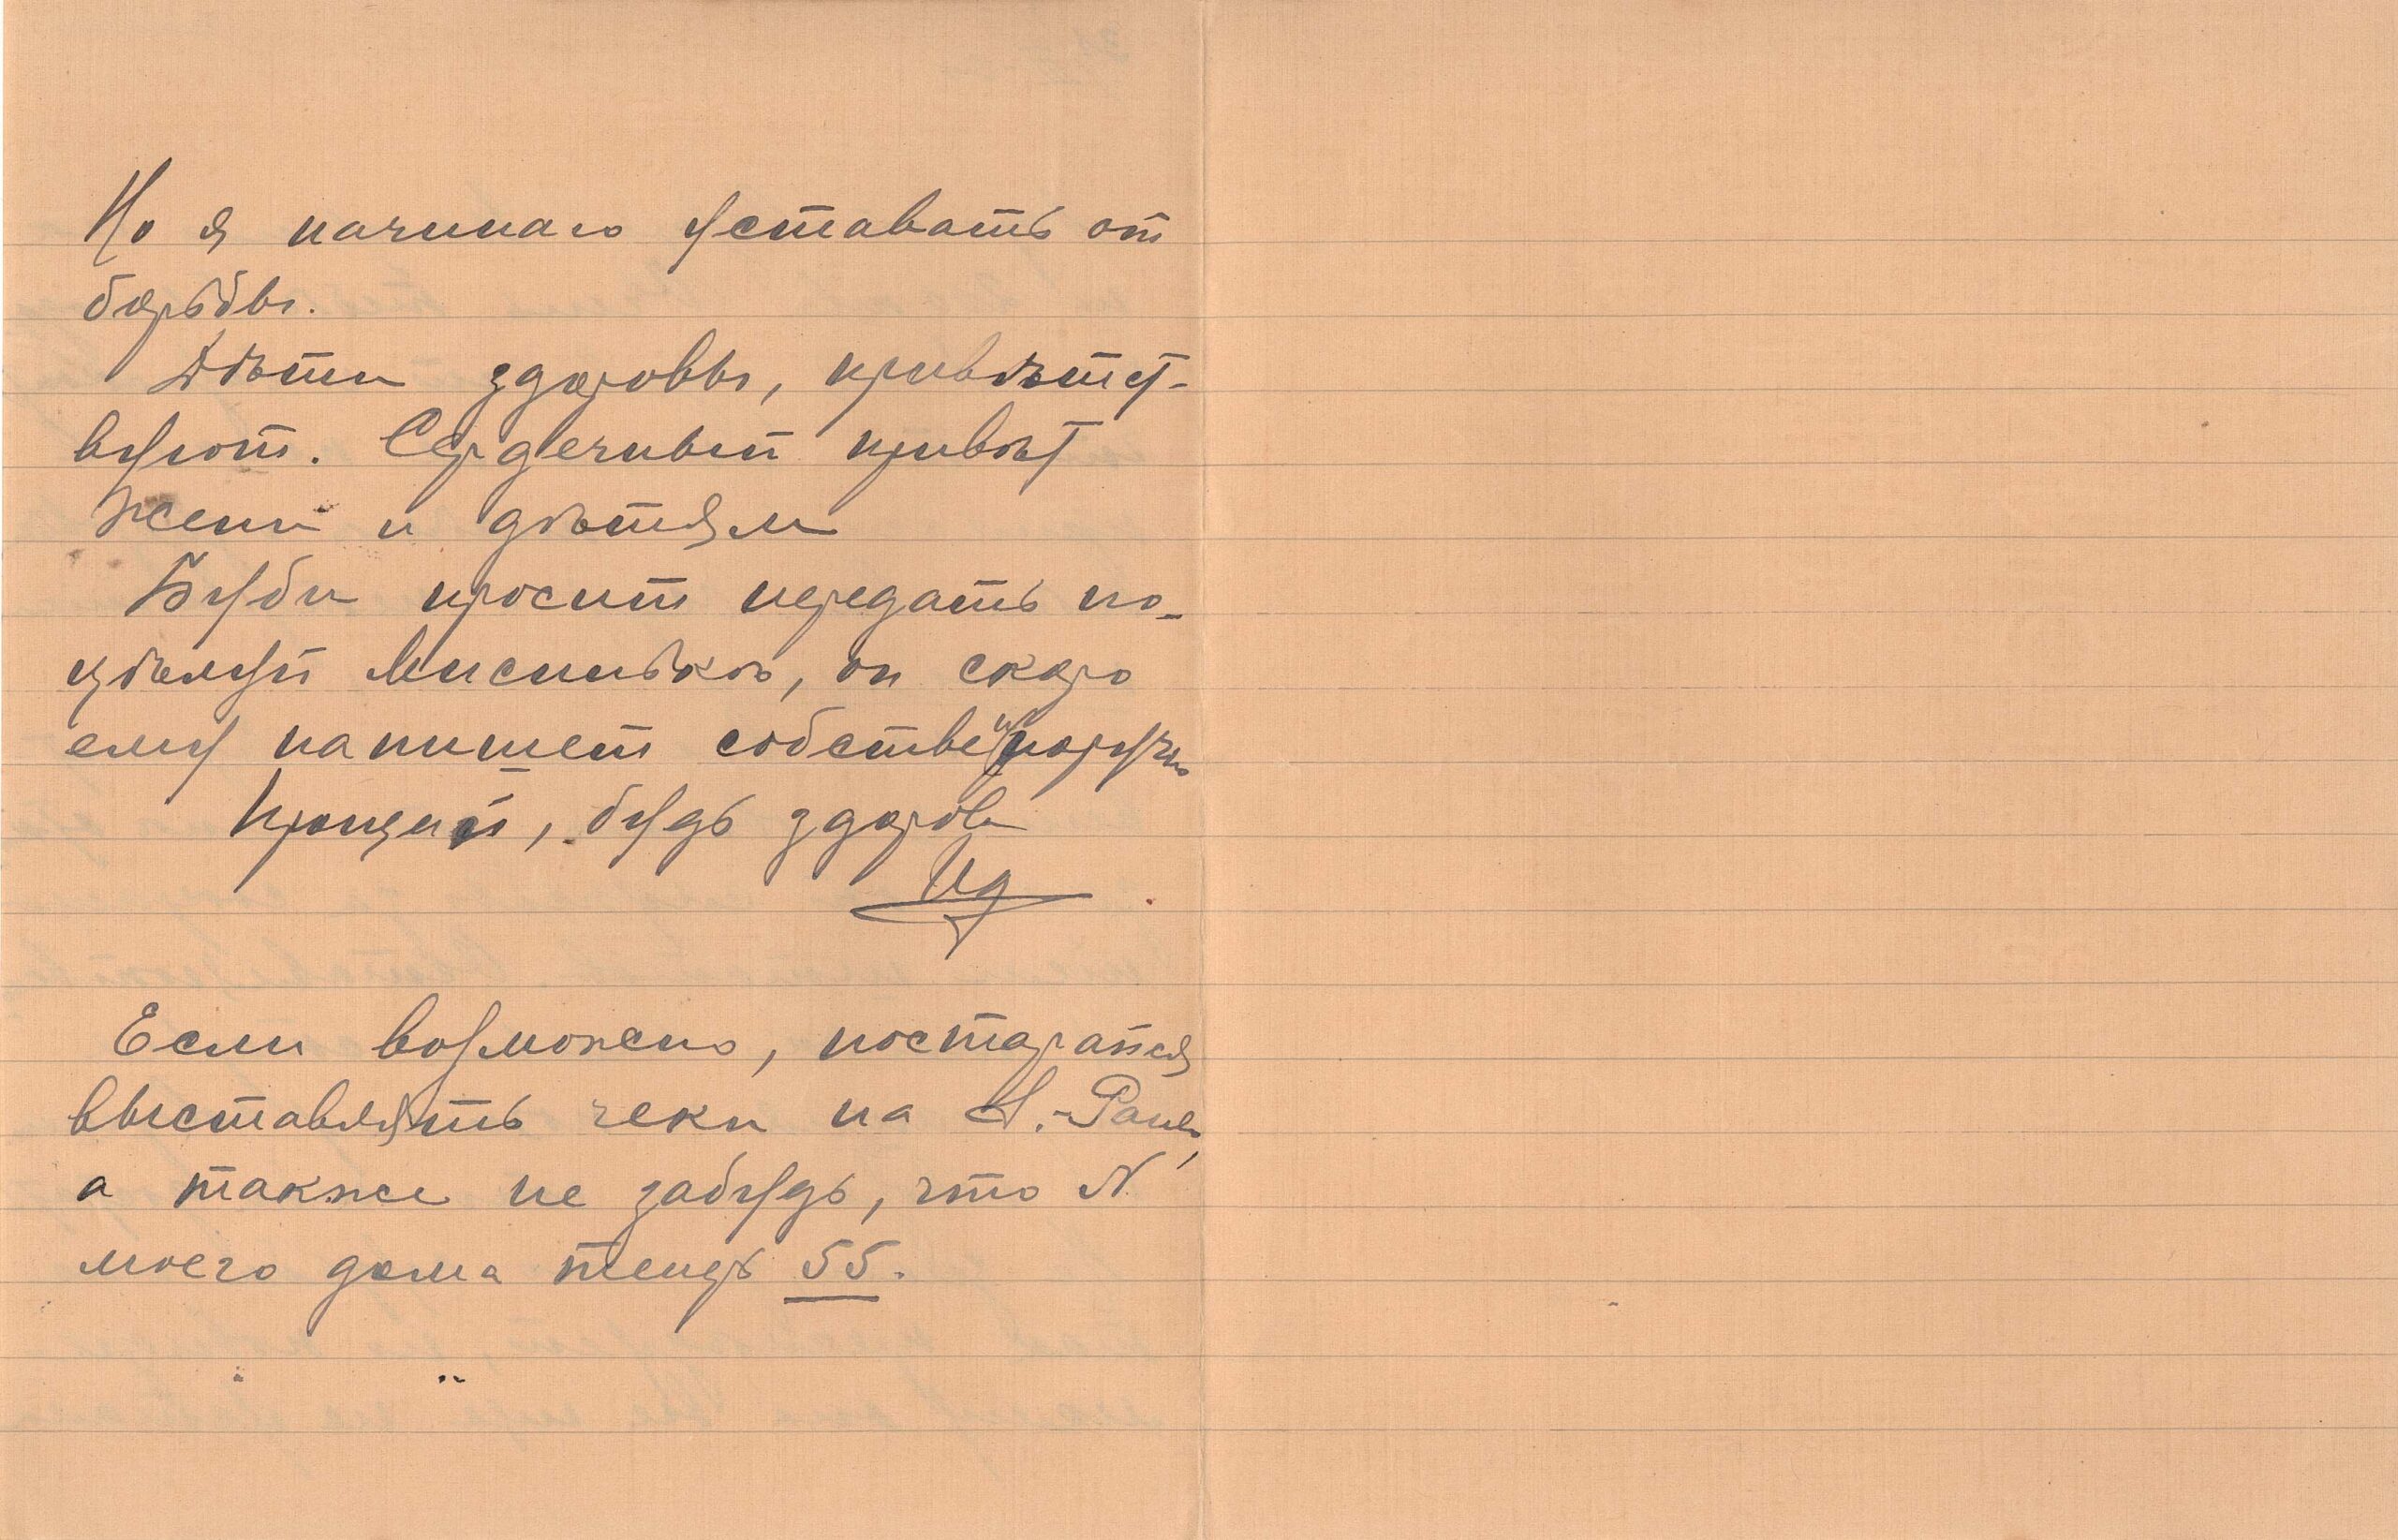 Но я начинаю уставать от
борьбы.
Дѣти здоровы, привѣтст-
вуют. Сердечный привѣт
жени и дѣтям
Буби просит передать по-
цѣлуй Мисинькѣ, он скоро
ему напишет собственноручно
Прощай, будь здоров
Ид
Если возможно, постарайся
выставлять чеки на S.-Paulo,
а также не забудь, что N
моего дома теперь 55.